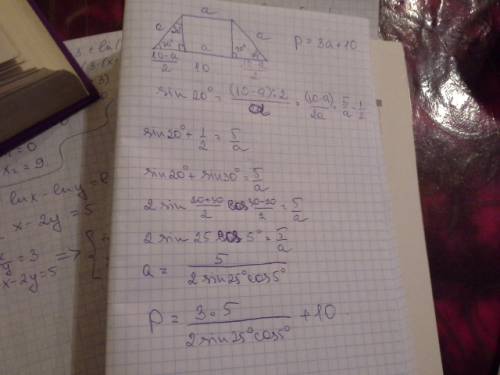 a
c
a
20°
a
10-a
2
10
P = 3a+10
sin 20° = (10-a):2 / a = (10-a) / 2a = 5/a - 1/2
sin 20° + 1/2 = 5/a
sin 20° + sin 30° = 5/a
2 sin (20+30)/2 cos (30-20)/2 = 5/a
2 sin 25 cos 5° = 5/a
a = 5 / 2 sin 25° cos 5°
P = 3·5 / 2 sin 25° cos 5° + 10
x₂ = 9
lnx - lny = 
x - 2y = 5
x/y = 3 =>
x - 2y = 5